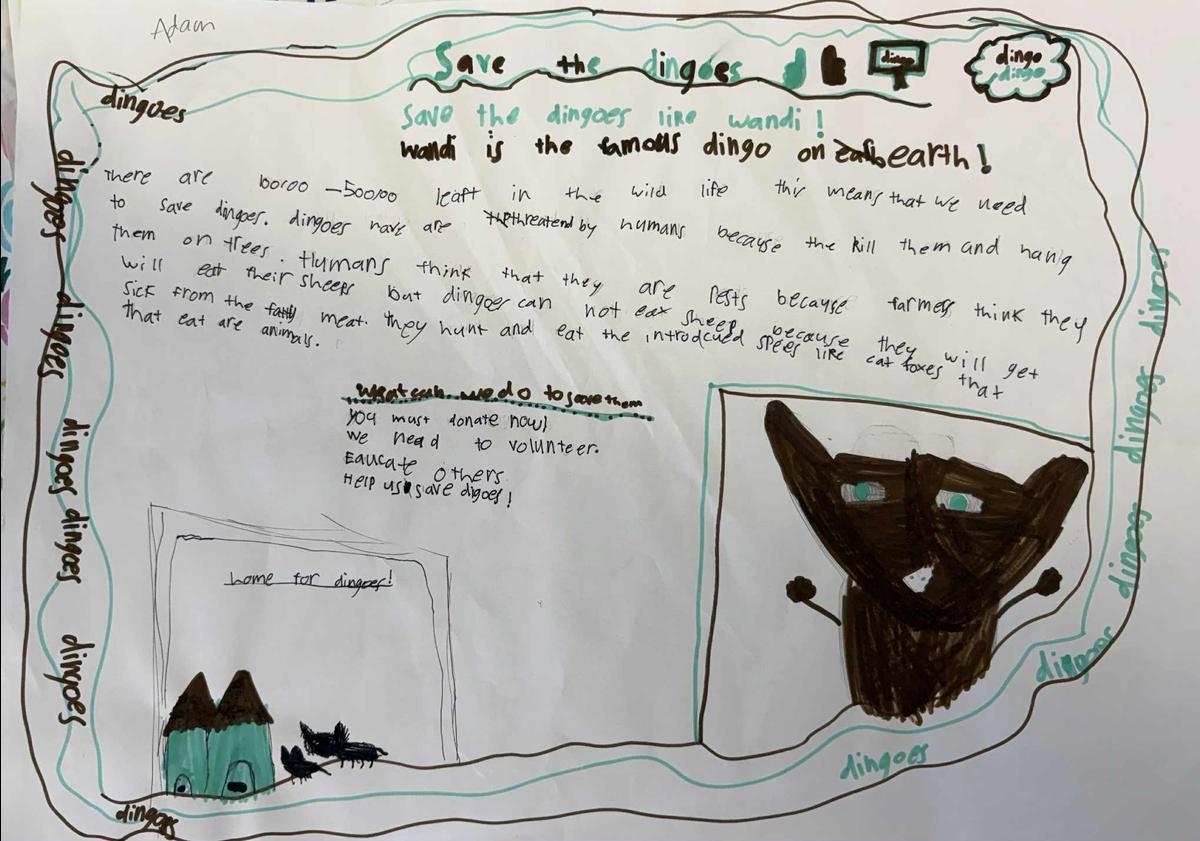 Adam
Save the dingoes
dingo
dingo
dingo
dingoes
Save the dingoes like wandi!
wandi is the famous dingo on earth!
There are 10000 - 500,00 leaft in the wild life this means that we need
to save dingoes. dingoes have are threatend by humans because the kill them and hang
them on trees. Humans think that they are Pests because farmers think they
will eat their sheeps but dingoes can not eat sheep because they will get
sick from the fatty meat. They hunt and eat the introdcued spees like cat foxes that
that eat are animals.
What can we do to save them
You must donate now!
We need to volunteer.
Eaucate others
Help us save digoes!
home for dingoes!
dingoes
dingoes
dingoes
dingoes
dingoes
dingoes
dingoes
dingoes
dingoes
dingoes
dingoes